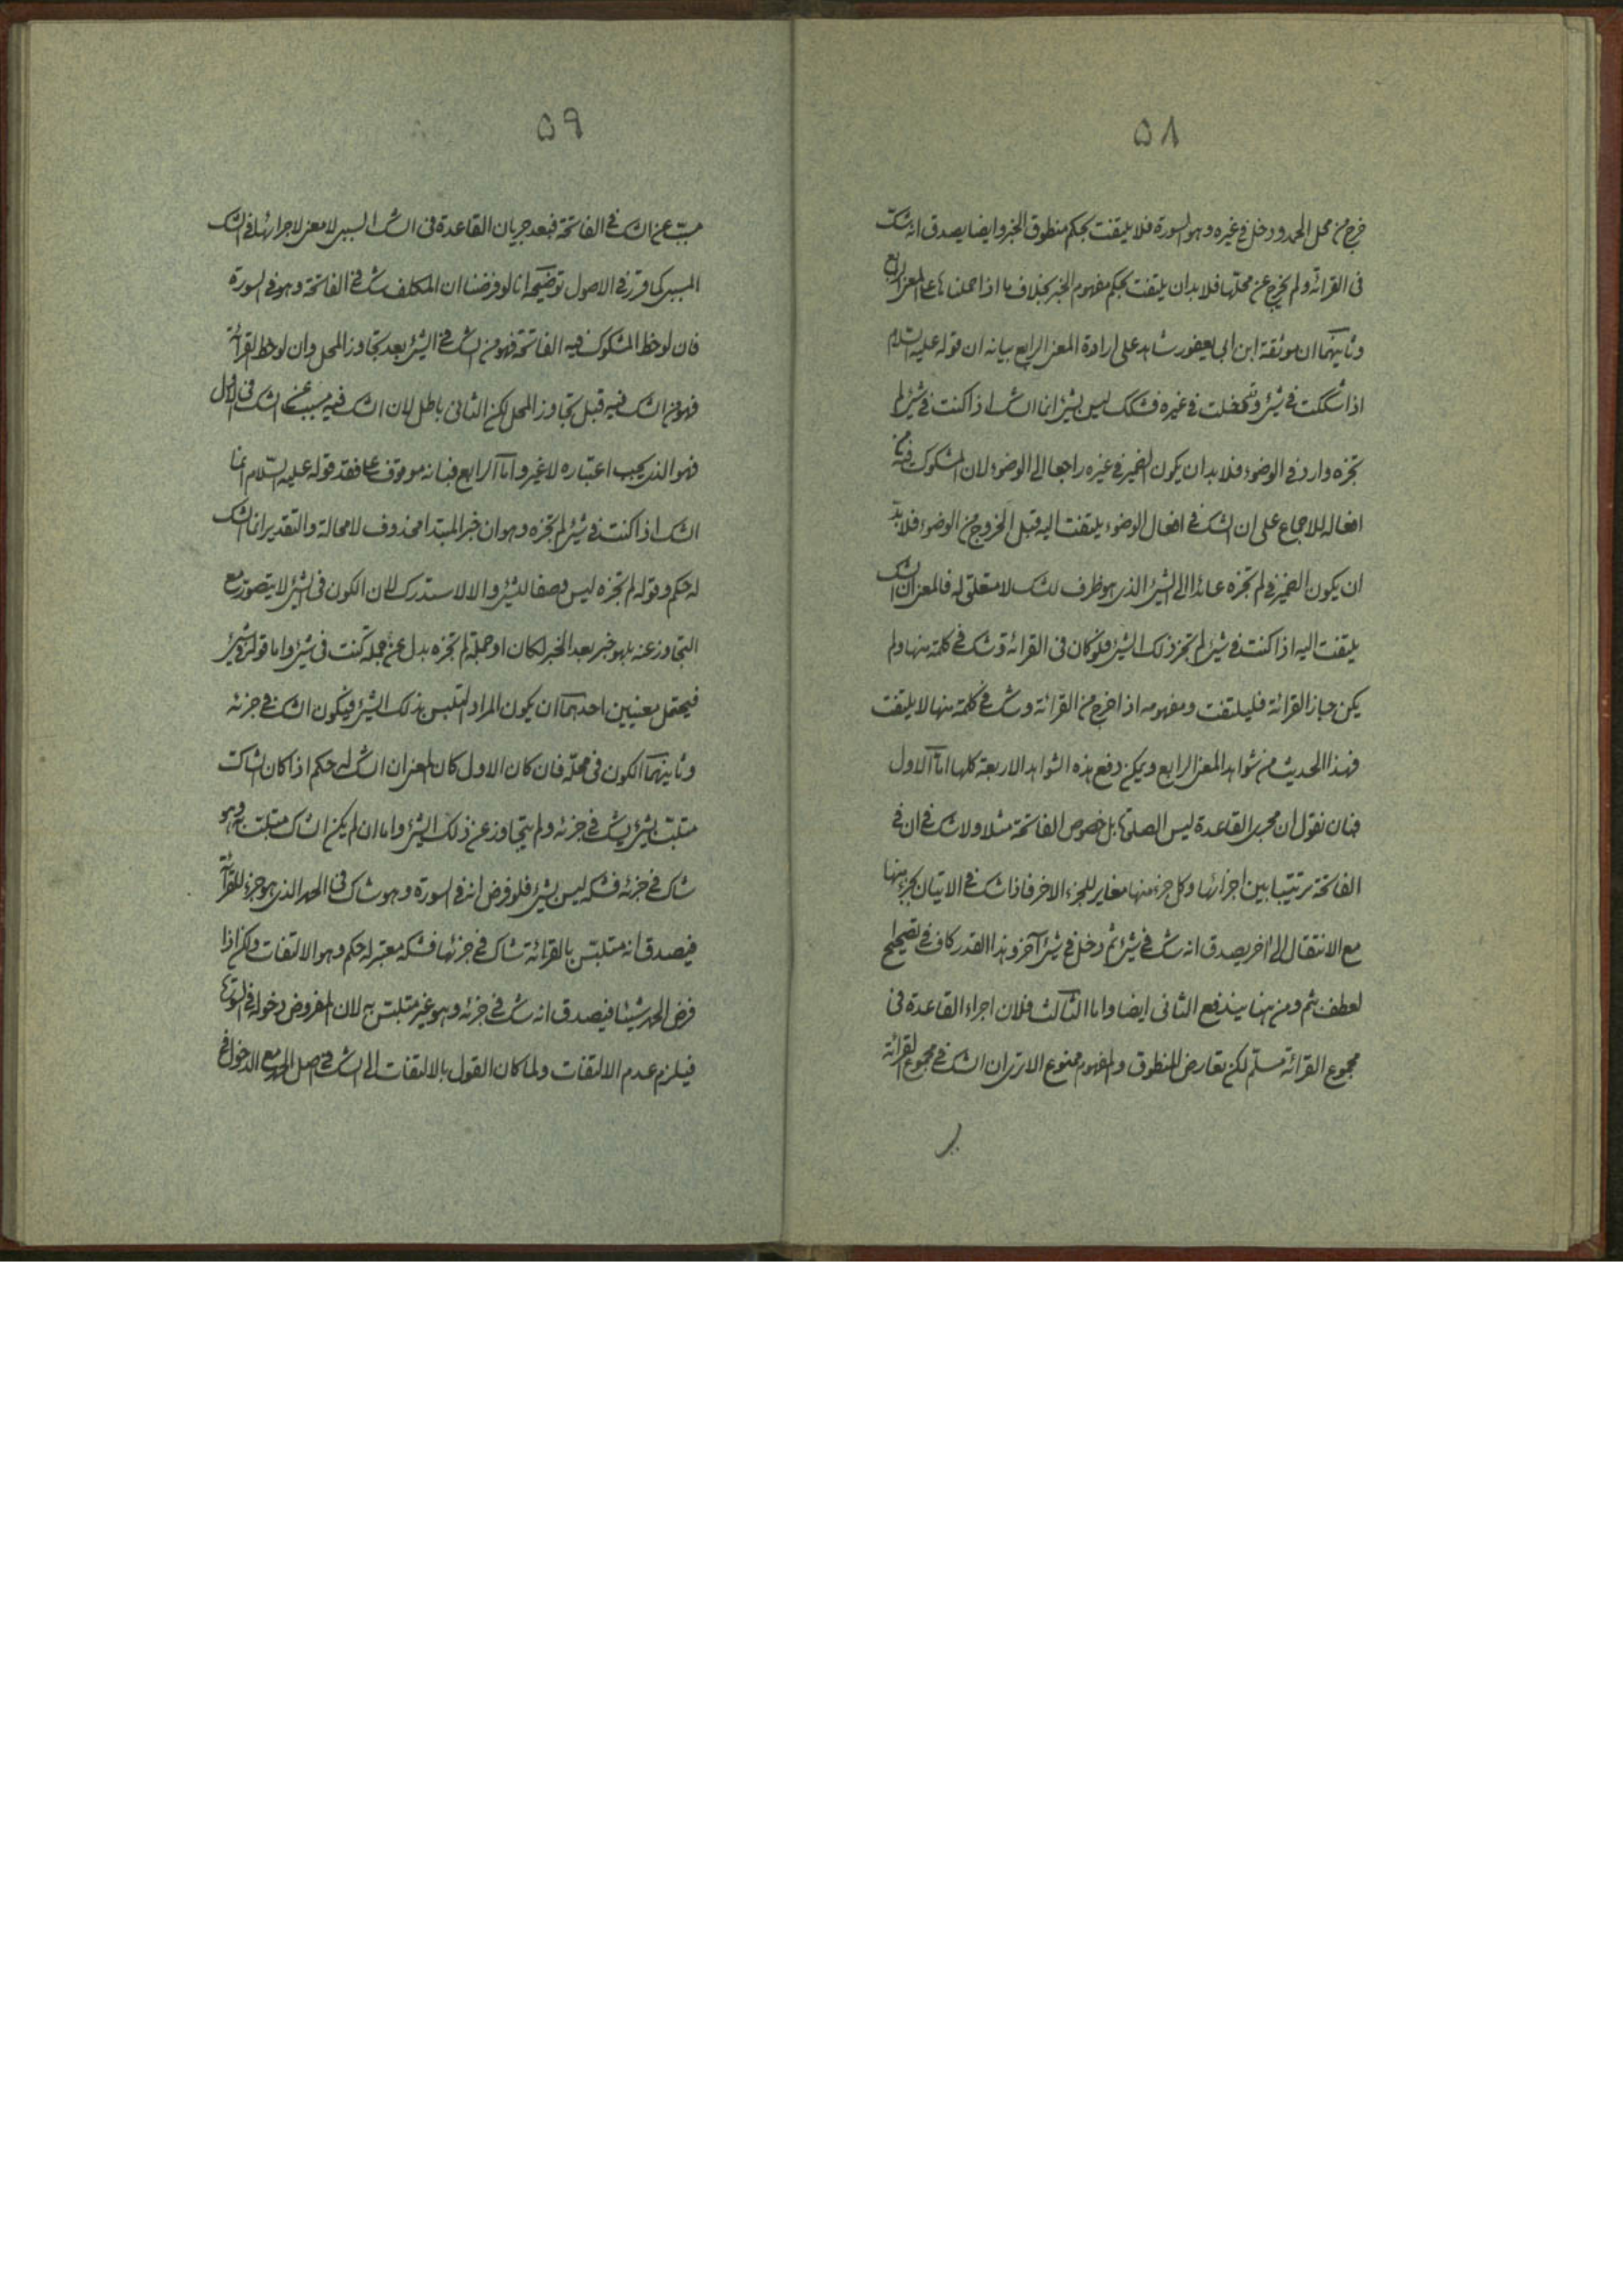 ۵۸
خرج من محل الحمد و دخل فی غیره و هو السورة فلا یلتفت بحکم منطوق الخبر و ایضا یصدق انه شک
فی القرائة و لم یخرج عن محلها فلا بد ان یلتفت بحکم مفهوم الخبر بخلاف ما اذا حملناها علی المعنی الرابع
و ثانیهما ان موثقة ابن ابی یعفور شاهد علی ارادة المعنی الرابع بیانه ان قوله علیه السلام
اذا شککت فی شیء و قد دخلت فی غیره فشکک لیس بشیء انما الشک اذا کنت فی شیء لم
تجزه وارد فی الوضوء فلا بد ان یکون الضمیر فی غیره راجعا الی الوضوء لان المشکوک فیه
افعاله للاجماع علی ان الشک فی افعال الوضوء یلتفت الیه قبل الخروج من الوضوء فلا بد
ان یکون الضمیر فی لم تجزه عائدا الی الشیء الذی هو ظرف للشک لا متعلق له فالمعنی ان الشک
یلتفت الیه اذا کنت فی شیء لم تجز ذلک الشیء فلو کان فی القرائة و شک فی کلمة منها و لم
یکن جاز القرائة فلیلتفت و مفهومه اذا خرج من القرائة و شک فی کلمة منها لا یلتفت
فهذا الحدیث من شواهد المعنی الرابع و یمکن دفع هذه الشواهد الاربعة کلها اما الاول
فبان نقول ان مجری القاعدة لیس الصلوة بل خصوص الفاتحة مثلا و لا شک فی ان فی
الفاتحة ترتیبا بین اجزائها و کل جزء منها مغایر للجزء الاخر فاذا شک فی الاتیان بجزء منها
مع الانتقال الی اخر یصدق انه شک فی شیء ثم دخل فی شیء آخر و هذا القدر کاف فی تصحیح
العطف بثم و من هنا یندفع الثانی ایضا و اما الثالث فلان اجراء القاعدة فی
مجموع القرائة مسلم لکن تعارض المنطوق و المفهوم ممنوع الا تری ان الشک فی مجموع القرائة
۵۹
مسبب عن الشک فی الفاتحة فبعد جریان القاعدة فی الشک السببی لا معنی لاجرائها فی الشک
المسببی کما قرر فی الاصول توضیحه انا لو فرضنا ان المکلف شک فی الفاتحة و هو فی السورة
فان لوحظ المشکوک فیه الفاتحة فهو من الشک فی الشیء بعد تجاوز المحل و ان لوحظ القرائة
فهو من الشک فیه قبل تجاوز المحل لکن الثانی باطل لان الشک فیه مسبب عن الشک فی الاول
فهو الذی یجب اعتباره لا غیر و اما الرابع فبانه موقوف علی فقد قوله علیه السلام انما
الشک اذا کنت فی شیء لم تجزه و هو ان خبر المبتدا محذوف لا محالة و التقدیر انما الشک
له حکم و قوله لم تجزه لیس وصفا لشیء و الا لاستدرک لان الکون فی الشیء لا یتصور مع
التجاوز عنه بل هو خبر بعد الخبر لکان او جملة لم تجزه بدل عن جملة کنت فی شیء و اما قوله فی شیء
فیحتمل معنیین احدهما ان یکون المراد التلبس بذلک الشیء فیکون الشک فی جزئه
و ثانیهما الکون فی محله فان کان الاول کان المعنی ان الشک له حکم اذا کان الشاک
متلبسا بشیء یشک فی جزئه و لم یتجاوز عن ذلک الشیء و اما ان لم یکن الشاک متلبسا به و هو
شاک فی جزئه فشکه لیس بشیء فلو فرض انه فی السورة و هو شاک فی الحمد الذی هو جزء للقرائة
فیصدق انه متلبس بالقرائة شاک فی جزئها فشکه معتبر له حکم و هو الالتفات و لکن اذا
فرض الحمد شیئا فیصدق انه شک فی جزئه و هو غیر متلبس به لان المفروض دخوله فی السورة
فیلزم عدم الالتفات و لما کان القول بالالتفات الی الشک فی اصل الحمد مع الدخول فی